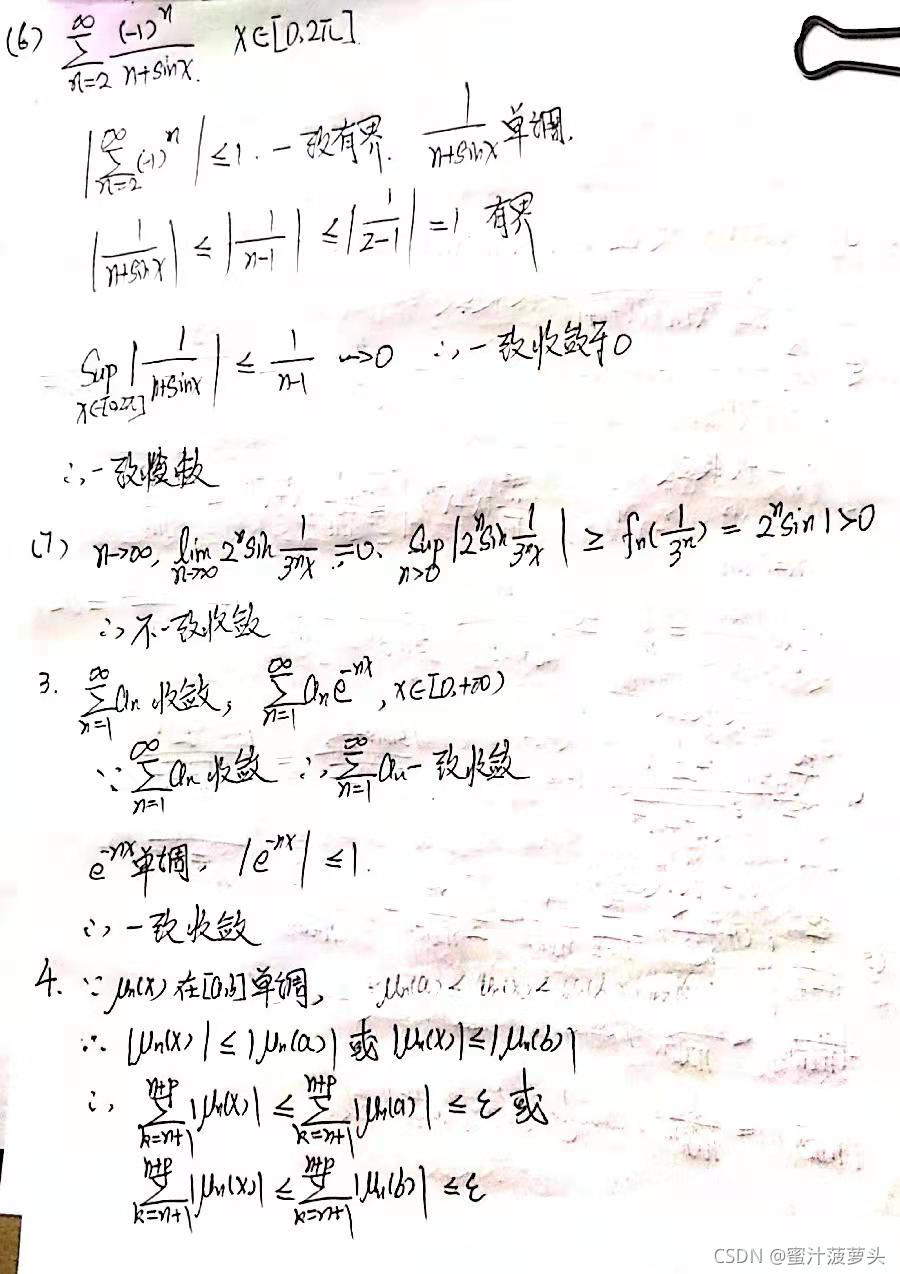 (6) $\sum_{n=2}^{\infty} \frac{(-1)^n}{n+\sin x}$. x∈[0,2π].
$|\sum_{n=2}^{\infty} (-1)^n| \le 1$. 一致有界. $\frac{1}{n+\sin x}$ 单调.
$|\frac{1}{n+\sin x}| \le |\frac{1}{n-1}| \le |\frac{1}{2-1}| = 1$ 有界
$\sup_{x∈[0,2π]} |\frac{1}{n+\sin x}| \le \frac{1}{n-1} \to 0$ ∴一致收敛于0
∴一致收敛
(7) n→∞, $\lim_{n\to\infty} 2^n \sin\frac{1}{3^n x} = 0$. $\sup_{n>0} |2^n \sin\frac{1}{3^n x}| \ge f_n(\frac{1}{3^n}) = 2^n \sin 1 > 0$
∴不一致收敛
3. $\sum_{n=1}^{\infty} a_n$ 收敛, $\sum_{n=1}^{\infty} a_n e^{-nx}$, x∈[0,+∞)
∵$\sum_{n=1}^{\infty} a_n$ 收敛 ∴$\sum_{n=1}^{\infty} a_n$ 一致收敛
$e^{-nx}$ 单调, $|e^{-nx}| \le 1$.
∴一致收敛
4. ∵ $\mu_n(x)$ 在[a,b]单调,
∴ $|\mu_n(x)| \le |\mu_n(a)|$ 或 $|\mu_n(x)| \le |\mu_n(b)|$
∴ $\sum_{k=n+1}^{n+p} |\mu_n(x)| \le \sum_{k=n+1}^{n+p} |\mu_n(a)| \le \varepsilon$ 或
$\sum_{k=n+1}^{n+p} |\mu_n(x)| \le \sum_{k=n+1}^{n+p} |\mu_n(b)| \le \varepsilon$
CSDN @蜜汁菠萝头